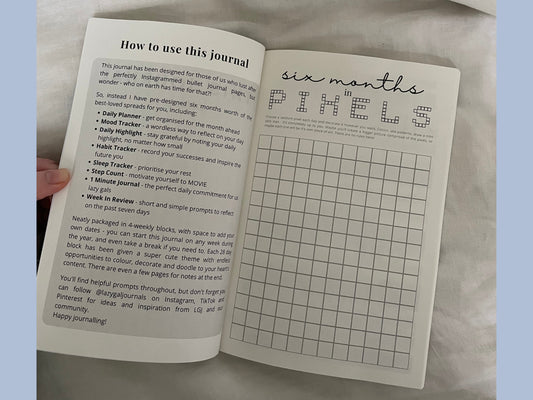 How to use this journal
This journal has been designed for those of us who lust after
the perfectly Instagrammed bullet journal pages, but
wonder - who on earth has time for that?!
So, instead I have pre-designed six months worth of the
best-loved spreads for you, including:
• Daily Planner - get organised for the month ahead
• Mood Tracker - a wordless way to reflect on your day
• Daily Highlight - stay grateful by noting your daily
highlight, no matter how small
• Habit Tracker - record your successes and inspire the
future you
• Sleep Tracker - prioritise your rest
• Step Count - motivate yourself to MOVIE
• 1 Minute Journal - the perfect daily commitment for us
lazy gals
• Week In Review - short and simple prompts to reflect
on the past seven days
Neatly packaged in 4-weekly blocks, with space to add your
own dates - you can start this journal on any week during
the year, and even take a break if you need to. Each 28 day
block has been given a super cute theme with endless
opportunities to colour, decorate and doodle to your heart's
content. There are even a few pages for notes at the end.
You'll find helpful prompts throughout, but don't forget you
can follow @lazygaljournals on Instagram, TikTok and
Pinterest for ideas and inspiration from LGJ and our
community.
Happy journalling!
six months
in
PIXELS